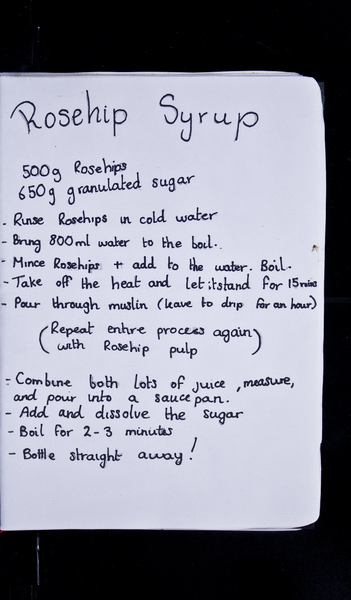 Rosehip Syrup
500g Rosehips
650g granulated sugar
- Rinse Rosehips in cold water
- Bring 800ml water to the boil.
- Mince Rosehips + add to the water. Boil.
- Take off the heat and let it stand for 15 mins
- Pour through muslin (leave to drip for an hour)
(Repeat entire process again
with Rosehip pulp)
- Combine both lots of juice, measure,
and pour into a saucepan.
- Add and dissolve the sugar
- Boil for 2-3 minutes
- Bottle straight away!